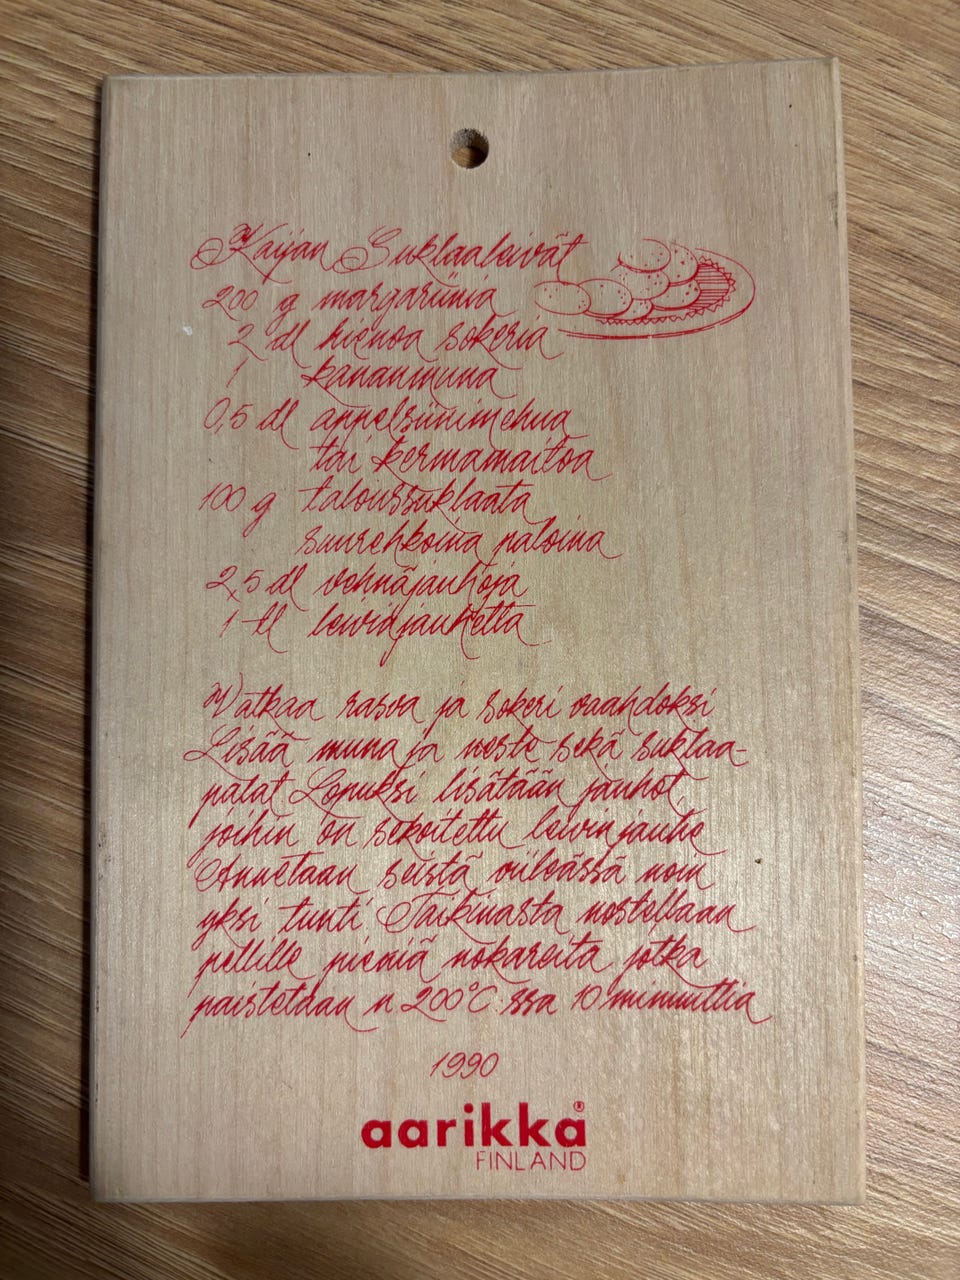 Kaijan Suklaaleivät
200 g margariinia
2 dl hienoa sokeria
1 kananmuna
0,5 dl appelsiinimehua
tai kermamaitoa
100 g taloussuklaata
suurehkoina paloina
2,5 dl vehnäjauhoja
1 tl leivinjauhetta
Vatkaa rasva ja sokeri vaahdoksi
Lisää muna ja neste sekä suklaa-
palat Lopuksi lisätään jauhot,
joihin on sekoitettu leivinjauhe
Annetaan seistä viileässä noin
yksi tunti Taikinasta nostellaan
pellille pieniä nokareita jotka
paistetaan n 200°C:ssa 10 minuuttia
1990
aarikka®
FINLAND